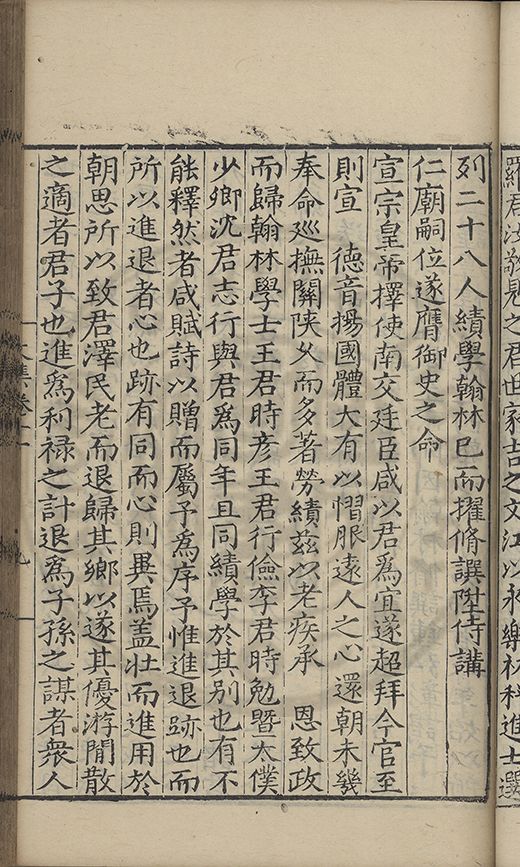 羅君汝敬見之君世家吉之文江以永樂材科進士選
列二十八人績學翰林已而擢脩譔陞侍講
仁廟嗣位遂膺御史之命
宣宗皇帝擇使南交廷臣咸以君爲宜遂超拜今官至
則宣 德音揚國體大有以慴服遠人之心還朝未幾
奉命巡撫關陜久而多著勞績茲以老疾承 恩致政
而歸翰林學士王君時彦王君行儉李君時勉暨太僕
少卿沈君志行與君爲同年且同績學於其別也有不
能釋然者咸賦詩以贈而屬予爲序予惟進退跡也而
所以進退者心也跡有同而心則異焉盖壯而進用於
朝思所以致君澤民老而退歸其鄉以遂其優游閒散
之適者君子也進爲利禄之計退爲子孫之謀者衆人
文集卷十一
九